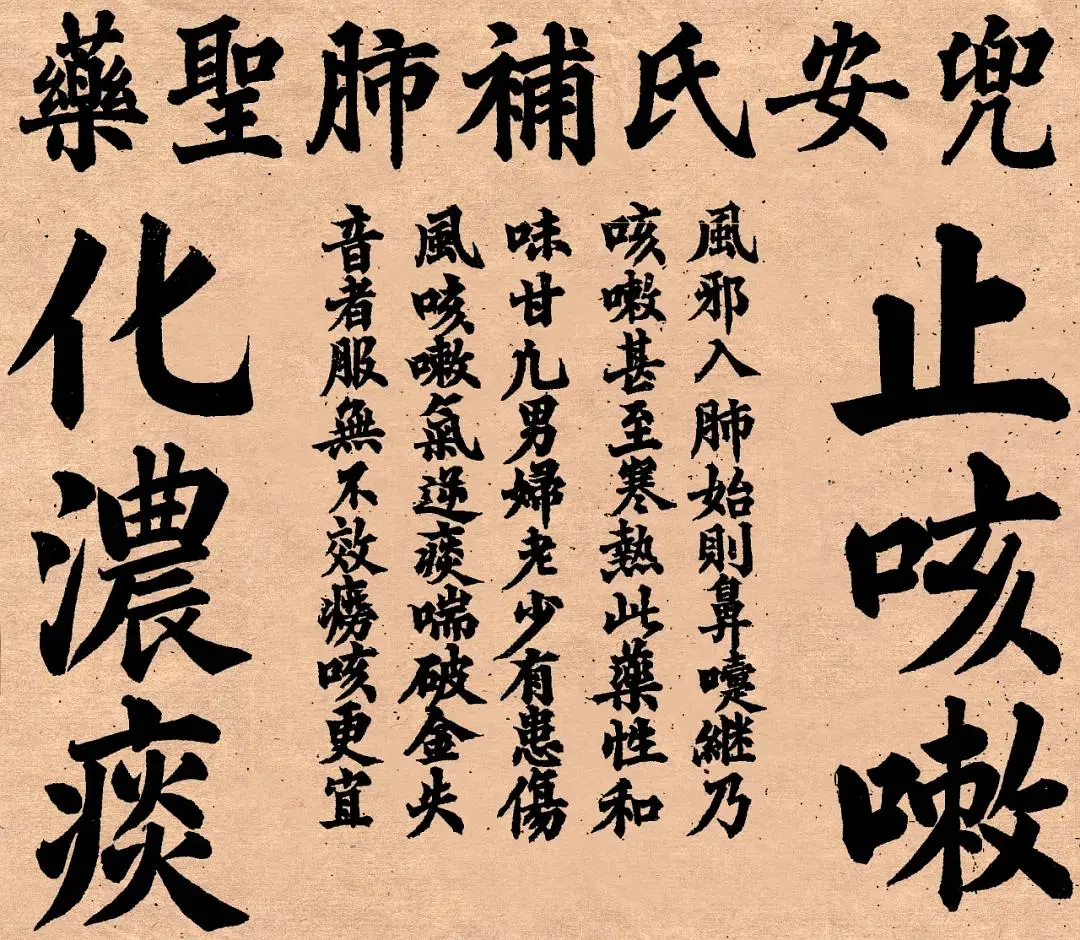 兜安氏補肺聖藥
止咳嗽
風邪入肺始則鼻嚏継乃
咳嗽甚至寒熱此藥性和
味甘凢男婦老少有患傷
風咳嗽氣逆痰喘破金失
音者服無不效癆咳更宜
化濃痰